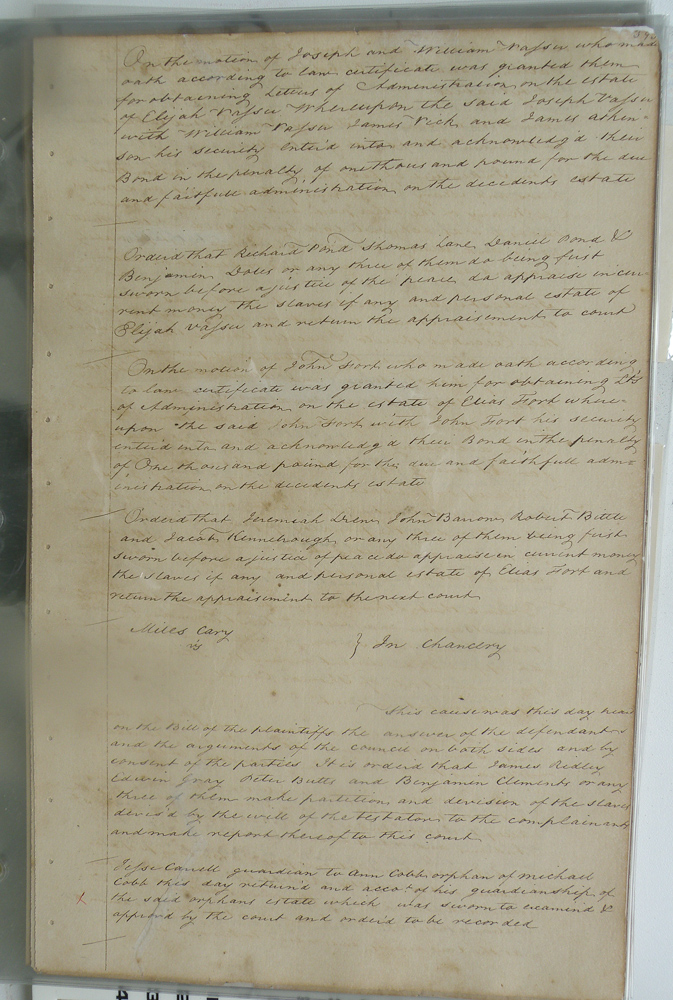 On the motion of Joseph and William Vasser who made
oath according to law certificate was granted them
for obtaining Letters of Administration on the estate
of Elijah Vasser Whereupon the said Joseph Vasser
with William Vasser James Vick and James askin=
son his security Enter'd into and acknowledg'd their
Bond in the penalty of one thousand pound for the due
and faitfull administration on the decidents estate
Orderd that Richard Pond Thomas Lane Daniel Pond &
Benjamin Doles or any three of them do being first
sworn before a justice of the peace do appraise in cur
rent money the slaves if any and personal estate of
Elijah Vasser and return the appraisement to court
On the motion of John Fort who made oath according
to law certificate was granted him for obtaining
of Administration on the estate of Elias Fort where=
upon the said John Fort with John Fort his security
enterd into and acknowledg'd their Bond in the penalty
of One thousand pound for the due and faithfull adm=
inistration on the decidents estate
Orderd that Jeremiah Drew John Barrow Robert Bittle
and Jacob or any three of them being first
sworn before a justice of peace do appraise in current money
the slaves if any and personal estate of Elias Fort and
return the appraisiment to the next court
Miles Cary
vs
} In Chancery
This cause was this day hear
on the Bill of the plaintiffs the answer of the defendants
and the arguments of the council on both sides and by
consent of the parties It is orderd that James Ridley
Edwin Gray Peter Butts and Benjamin Clements or any
three of them make partition and devision of the slaves
devis'd by the will of the testator to the complainants
and make report thereof to this court
Jesse guardian to Ann Cobb orphan of michael
Cobb this day return'd and acco.t of his guardianship of
X the said orphans estate which was sworn to examind &
approvd by the court and orderd to be recorded